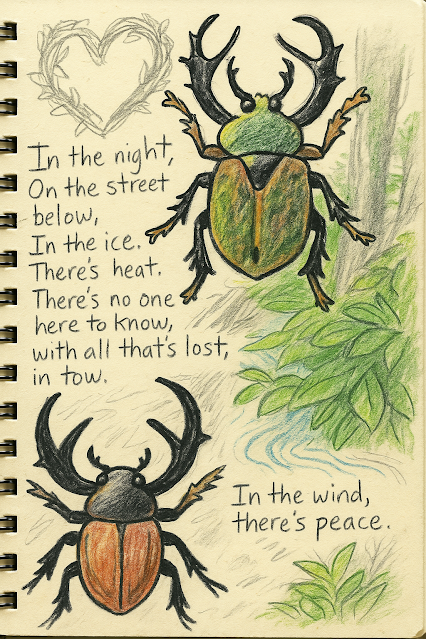 In the night,
On the street
below,
In the ice.
There's heat.
There's no one
here to know,
with all that's lost,
in tow.
In the wind,
there's peace.